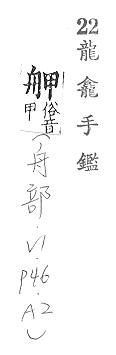 22龍龕手鑑
舺俗音甲
(舟部.VI.P46.A2)